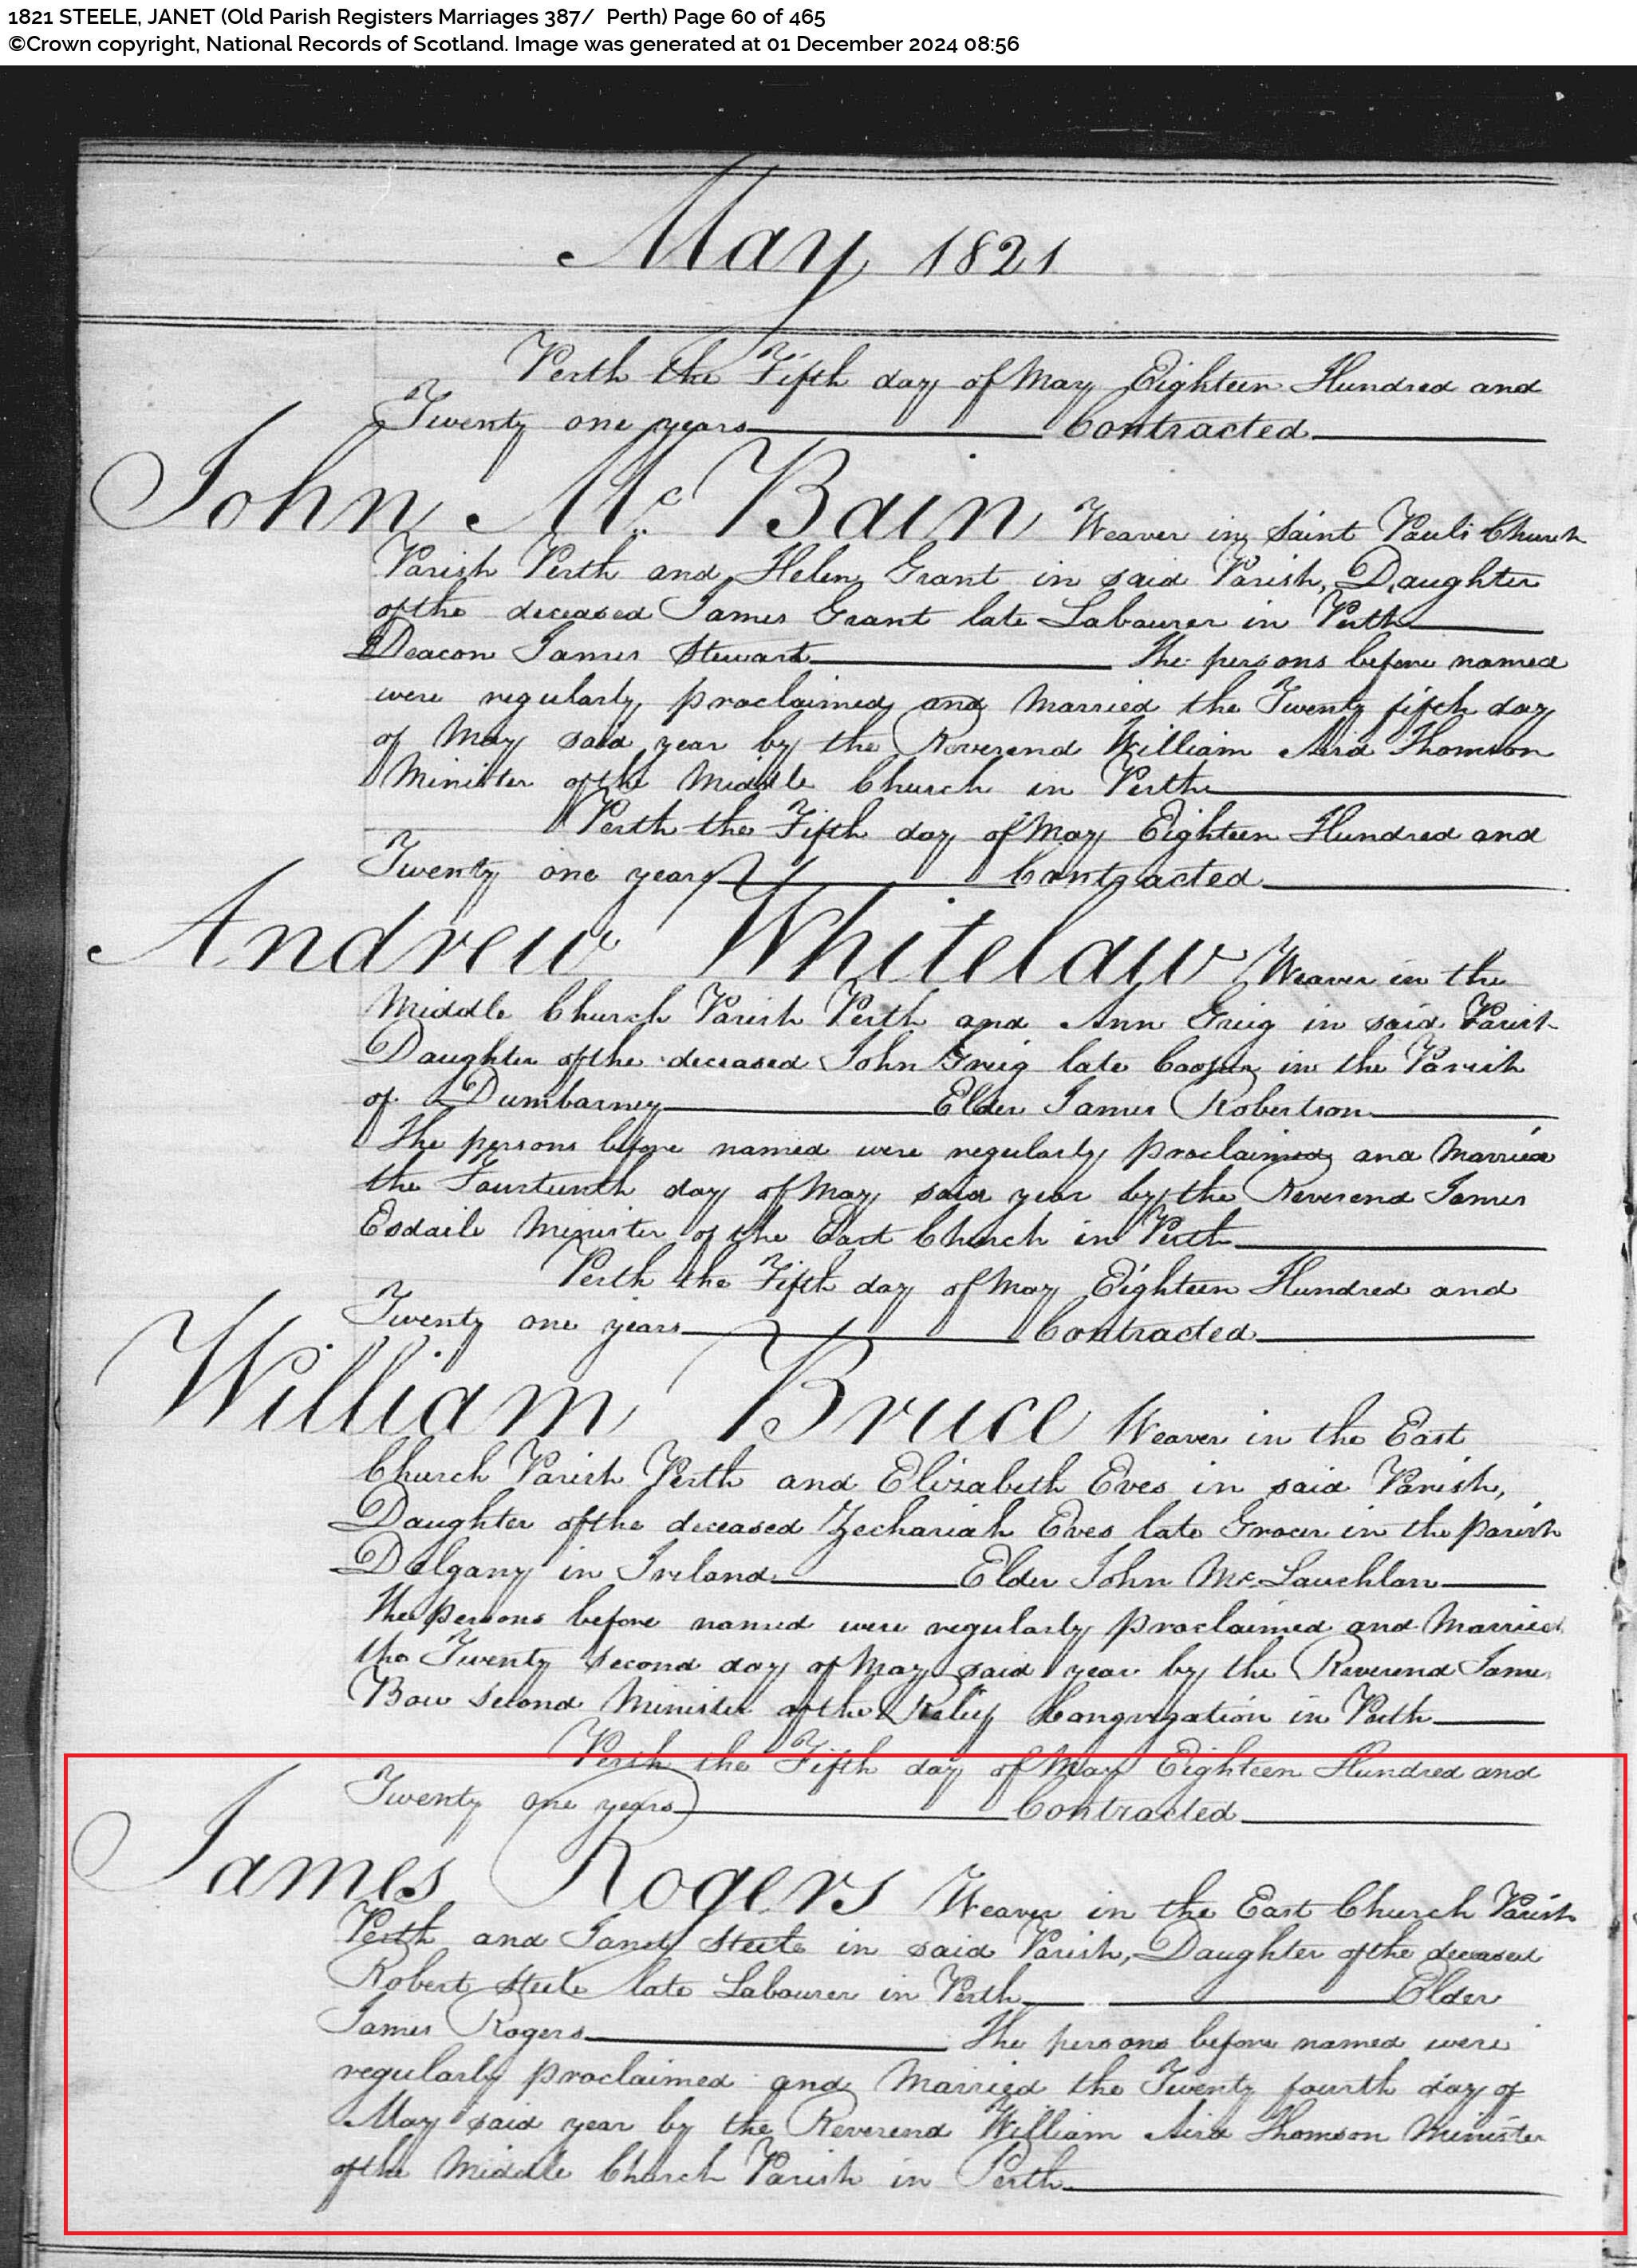 1821 STEELE, JANET (Old Parish Registers Marriages 387/ Perth) Page 60 of 465
©Crown copyright, National Records of Scotland. Image was generated at 01 December 2024 08:56
May 1821
Perth the Fifth day of May Eighteen Hundred and
Twenty one years Contracted
John Mc Bain Weaver in Saint Pauls Church
Parish Perth and Helen Grant in said Parish, Daughter
of the deceased James Grant late Labourer in Perth
Deacon James Stewart The persons before named
were regularly proclaimed and Married the Twenty fifth day
of May said year by the Reverend William Aird Thomson
Minister of the Middle Church in Perth
Perth the Fifth day of May Eighteen Hundred and
Twenty one years Contracted
Andrew Whitelaw Weaver in the
Middle Church Parish Perth and Ann Greig in said Parish
Daughter of the deceased John Greig late Cooper in the Parish
of Dumbarney Elder James Robertson
The persons before named were regularly proclaimed and Married
the Fourteenth day of May said year by the Reverend James
Esdaile Minister of the East Church in Perth
Perth the Fifth day of May Eighteen Hundred and
Twenty one years Contracted
William Bruce Weaver in the East
Church Parish Perth and Elizabeth Eves in said Parish,
Daughter of the deceased Zechariah Eves late Grocer in the parish
Delgany in Ireland Elder John Mc Lauchlan
The persons before named were regularly proclaimed and Married
the Twenty second day of May said year by the Reverend James
Bow Second Minister of the Relief Congregation in Perth
Perth the Fifth day of May Eighteen Hundred and
Twenty one years Contracted
James Rogers Weaver in the East Church Parish
Perth and Janet Steele in said Parish, Daughter of the deceased
Robert Steele late Labourer in Perth Elder
James Rogers The persons before named were
regularly proclaimed and Married the Twenty fourth day of
May said year by the Reverend William Aird Thomson Minister
of the Middle Church Parish in Perth